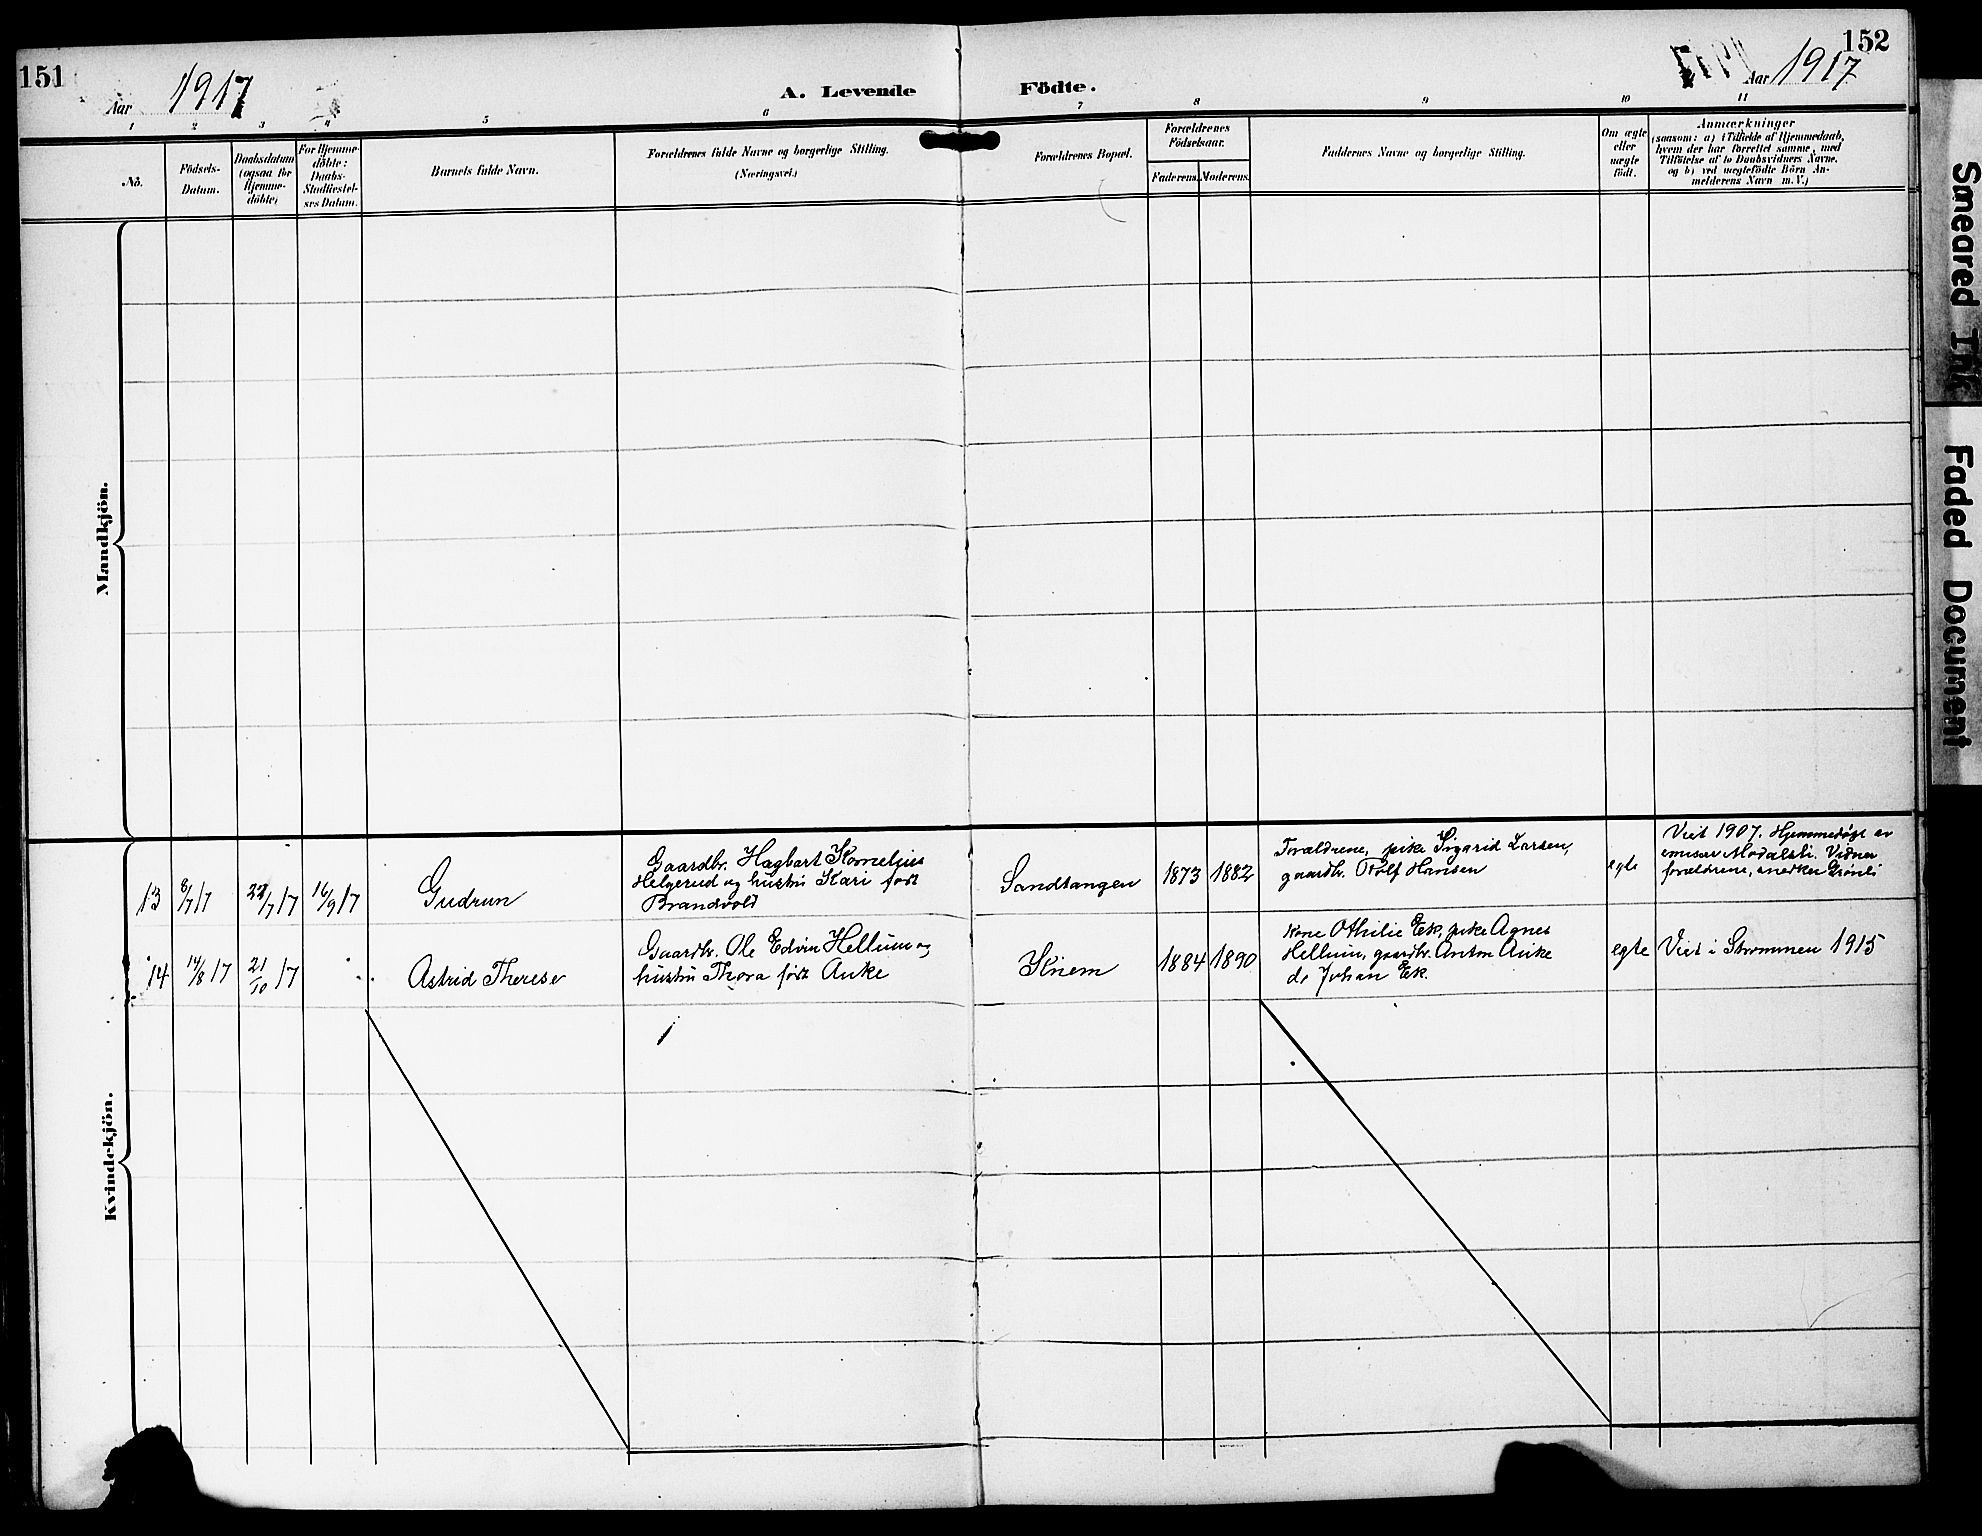 151
Aar 1917
A. Levende Födte.
152
Aar 1917
1 2 3 4 5 6 7 8 9 10 11
No.
Födsels-
Datum.
Daabsdatum
(ogsaa for
Hjemme-
döbte)
For Hjemme-
döbte:
Daabs-
Stadfæstel-
ses Datum.
Barnets fulde Navn.
Forældrenes fulde Navne og borgerlige Stilling.
(Næringsvei.)
Forældrenes Bopæl.
Forældrenes
Födselsaar.
Faderens. Moderens.
Faddernes Navne og borgerlige Stilling.
Om ægte
eller
uægte
födt.
Anmærkninger
(saasom: a) i Tilfælde af Hjemmedaab,
hvem der har forrettet samme, med
Tilföielse af to Daabsvidners Navne,
og b) ved uægtefödte Börn An-
melderens Navn m. V.)
Mandkjön.
Kvindekjön.
13
8/7 17
22/7 17
16/9 17
Gudrun
Gaardbr. Hagbart Kornelius
Helgerud og hustru Kari født
Brandvold
Sandtangen
1873
1882
Forældrene, pike Sigarid Larsen,
gaardbr. Rolf Hansen
egte
Viet 1907. Hjemmedøpt av
emissær Modalsli. Vidner
forældrene, snedker Grönli
14
14/8 17
21/10 17
Astrid Therese
Gaardbr. Ole Edvin Hellum og
hustru Thora født Auke
Knem
1884
1890
Kone Othilie Eek, pike Agnes
Hellum, gaardbr. Anton Auke
do Johan Eek.
egte
Viet i Strømmen 1915
Smeared Ink
Faded Document